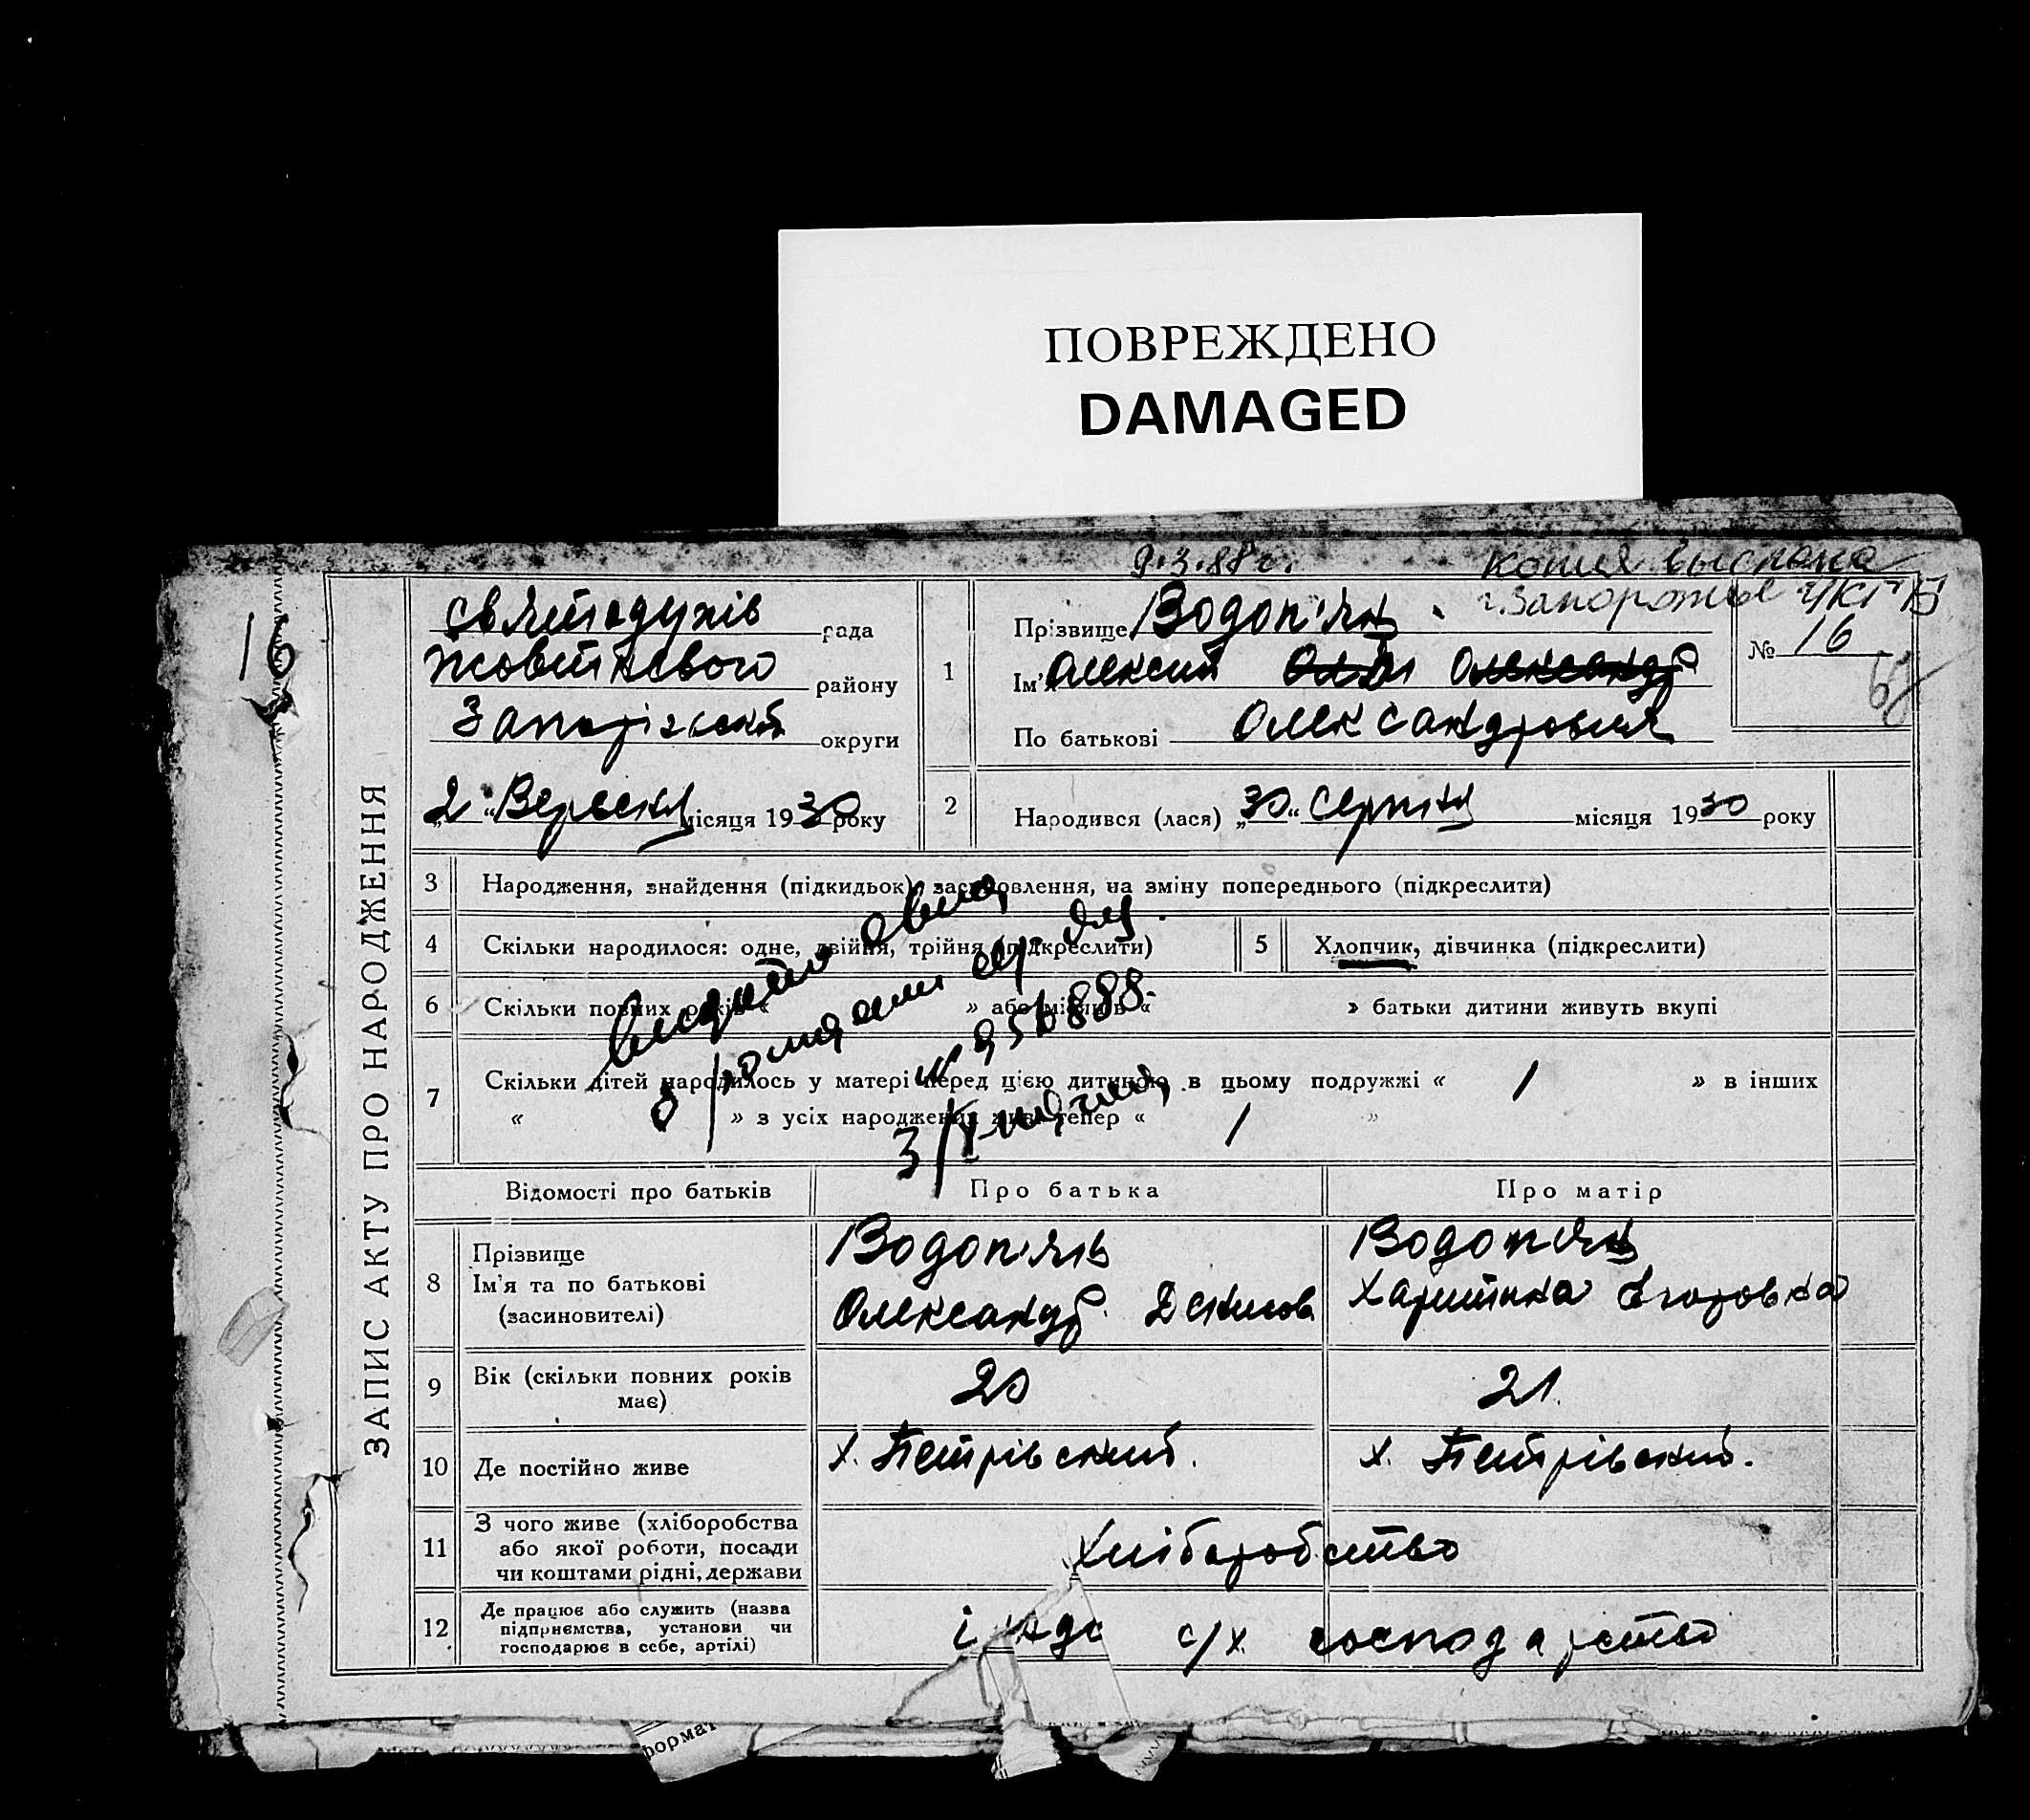 ПОВРЕЖДЕНО
DAMAGED
9.3.88 г. Копия выслана
г. Запорожье УКГБ
16
ЗАПИС АКТУ ПРО НАРОДЖЕННЯ
Святодухів рада
Жовтневого району
Запорізької округи
„2“ Вересня місяця 1930 року
1
Прізвище Водоп'ян
Ім'я Олексий Олександр
По батькові Олександрович
№ 16
2 Народився (лася) „30“ Серпня місяця 1930 року
3 Народження, знайдення (підкидьок), засиновлення, на зміну попереднього (підкреслити)
4 Скільки народилося: одне, двійня, трійня (підкреслити)
5 Хлопчик, дівчинка (підкреслити)
6 Скільки повних років « » або місяців « » батьки дитини живуть вкупі
7 Скільки дітей народилось у матері перед цією дитиною в цьому подружжі « 1 » в інших
« » з усіх народжених живі тепер « 1 »
№ 956888
Відомості про батьків Про батька Про матір
8 Прізвище
Ім'я та по батькові
(засиновителі)
Водоп'ян
Олександр Денисов
Водоп'ян
Харитина Егоровна
9 Вік (скільки повних років
має)
20 21
10 Де постійно живе х. Петрівский. х. Петрівский.
11 З чого живе (хліборобства
або якої роботи, посади
чи коштами рідні, держави
Хліборобство
12 Де працює або служить (назва
підприємства, установи чи
господарює в себе, артілі)
с/х господарство
формат